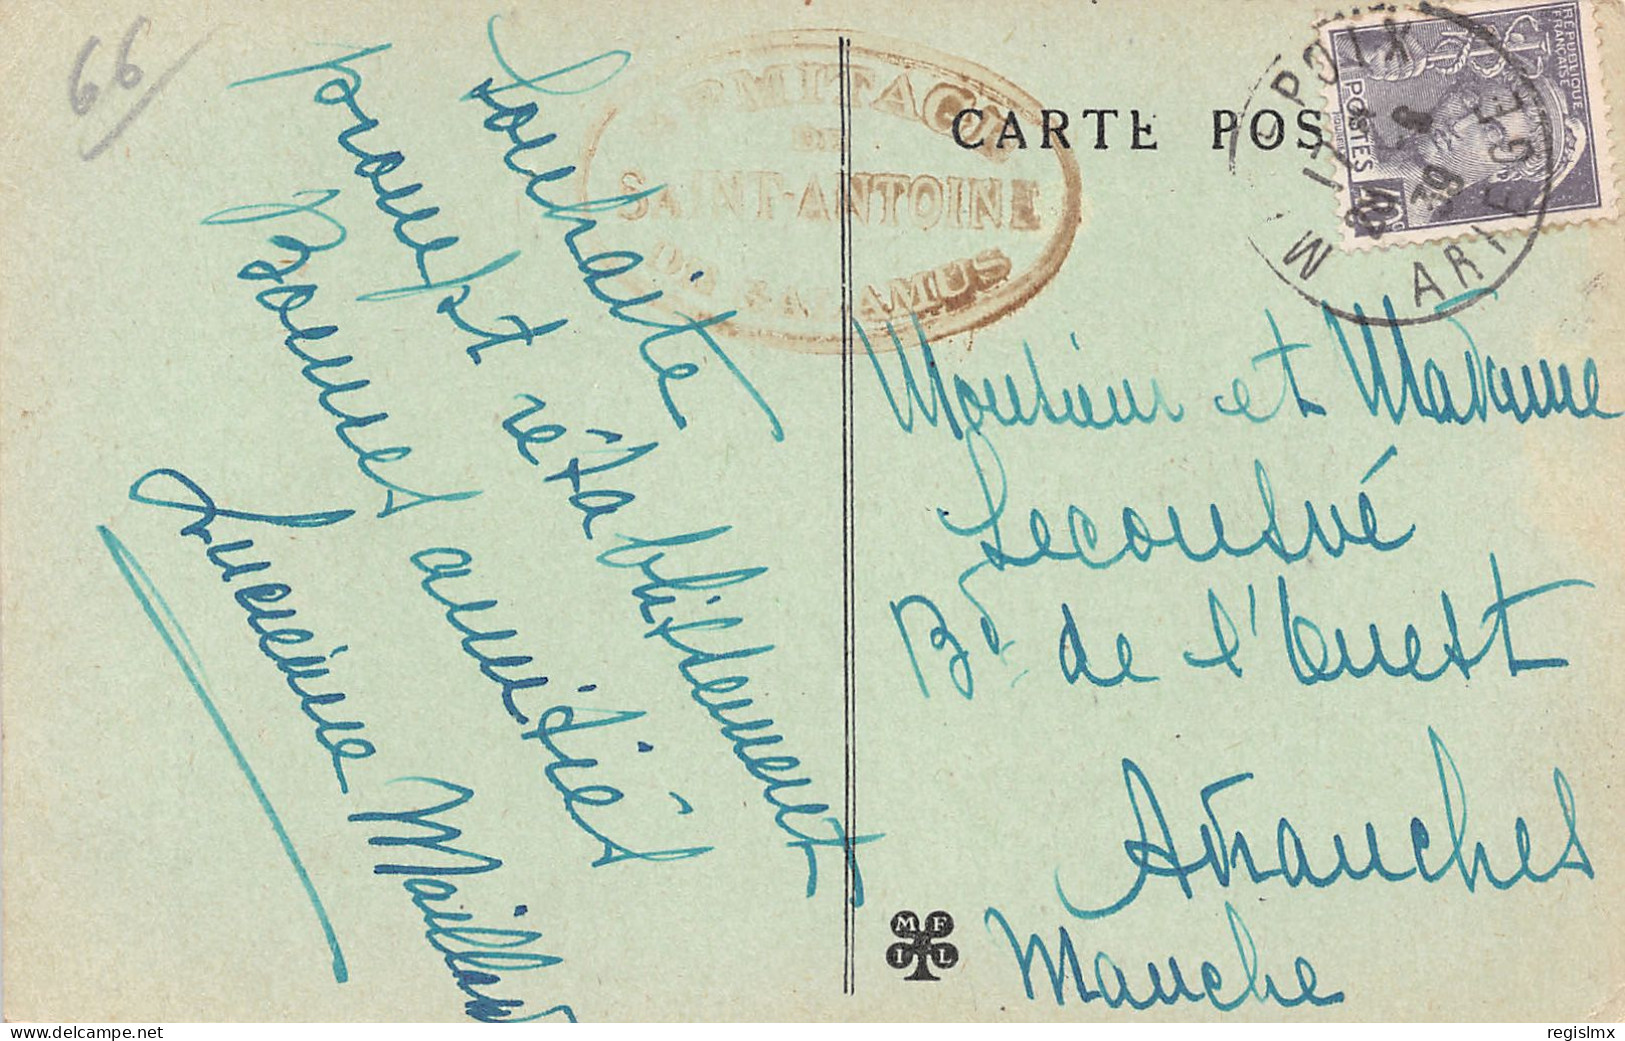 66
ERMITAGE
DE
SAINT-ANTOINE
DE GALAMUS
CARTE POS
RÉPUBLIQUE
FRANÇAISE
POSTES
MIREPOIX
39
ARIEGE
Souhaite
prompt rétablissement
Bonnes amitiés
Lucienne Maillard
Monsieur et Madame
Lecousvé
Bd de l'Ouest
Avranches
Manche
M F
I L
delcampe.net
regislmx